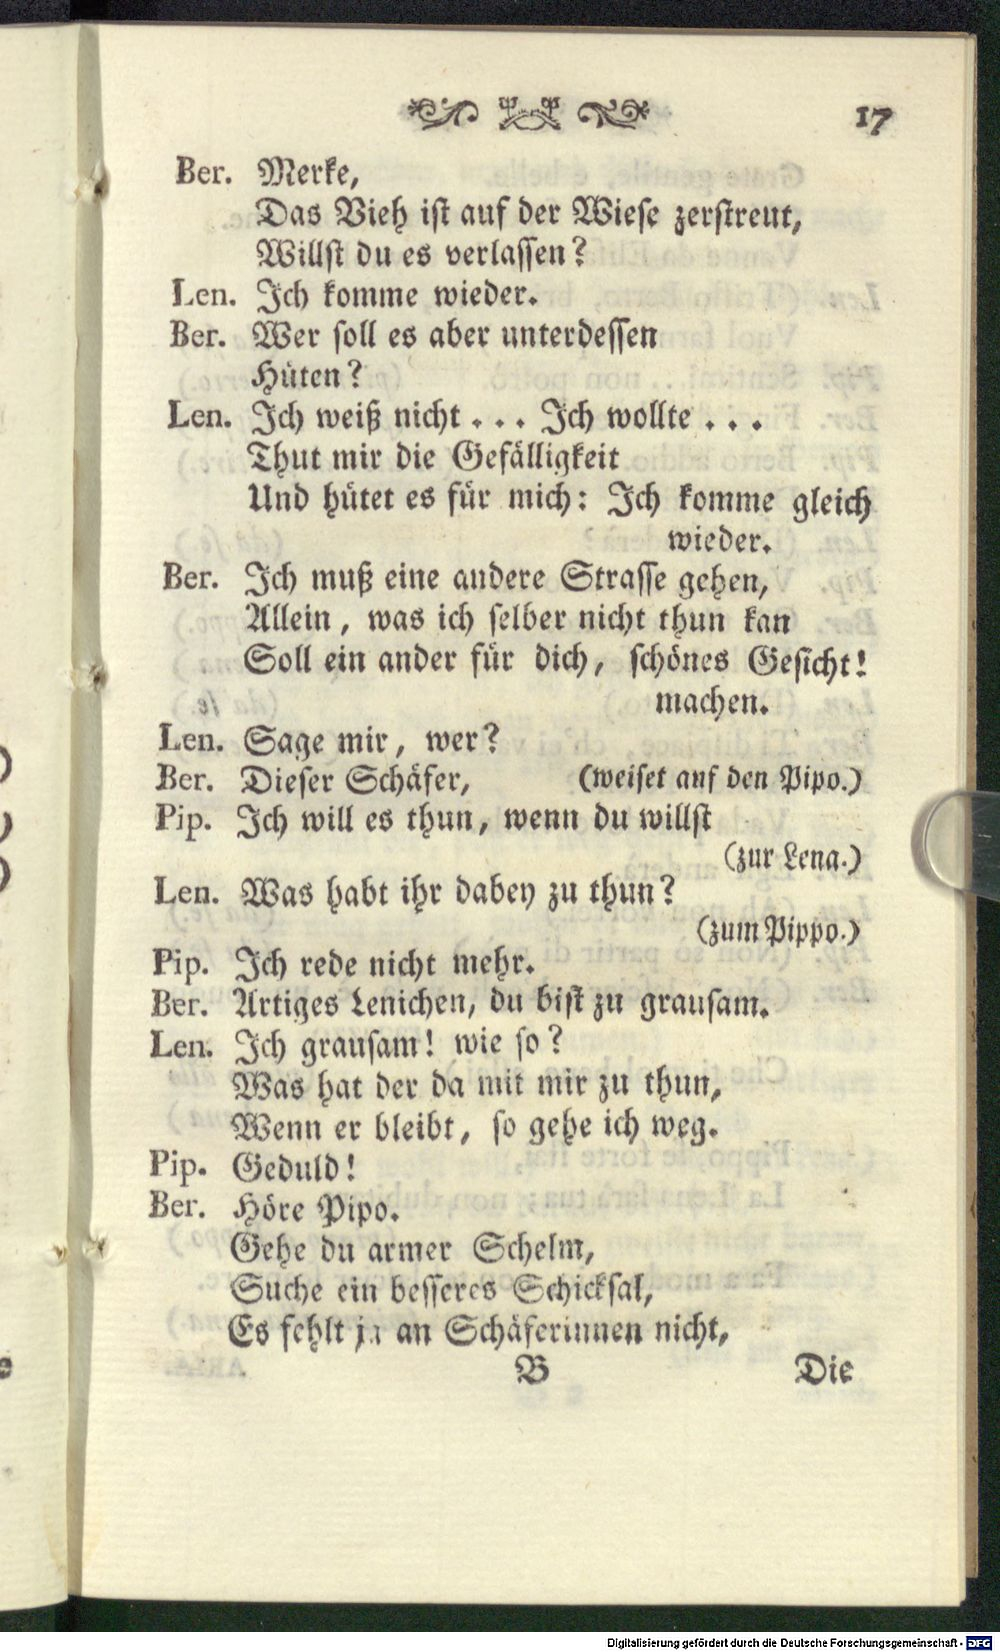 17
Ber. Merke,
Das Vieh ist auf der Wiese zerstreut,
Willst du es verlassen?
Len. Ich komme wieder.
Ber. Wer soll es aber unterdessen
Hüten?
Len. Ich weiß nicht . . . Ich wollte . . .
Thut mir die Gefälligkeit
Und hütet es für mich: Ich komme gleich
wieder.
Ber. Ich muß eine andere Strasse gehen,
Allein, was ich selber nicht thun kan
Soll ein ander für dich, schönes Gesicht!
machen.
Len. Sage mir, wer?
Ber. Dieser Schäfer, (weiset auf den Pipo.)
Pip. Ich will es thun, wenn du willst
(zur Lena.)
Len. Was habt ihr dabey zu thun?
(zum Pippo.)
Pip. Ich rede nicht mehr.
Ber. Artiges Lenichen, du bist zu grausam.
Len. Ich grausam! wie so?
Was hat der da mit mir zu thun,
Wenn er bleibt, so gehe ich weg.
Pip. Geduld!
Ber. Höre Pipo.
Gehe du armer Schelm,
Suche ein besseres Schicksal,
Es fehlt ja an Schäferinnen nicht,
B Die
Digitalisierung gefördert durch die Deutsche Forschungsgemeinschaft - DFG